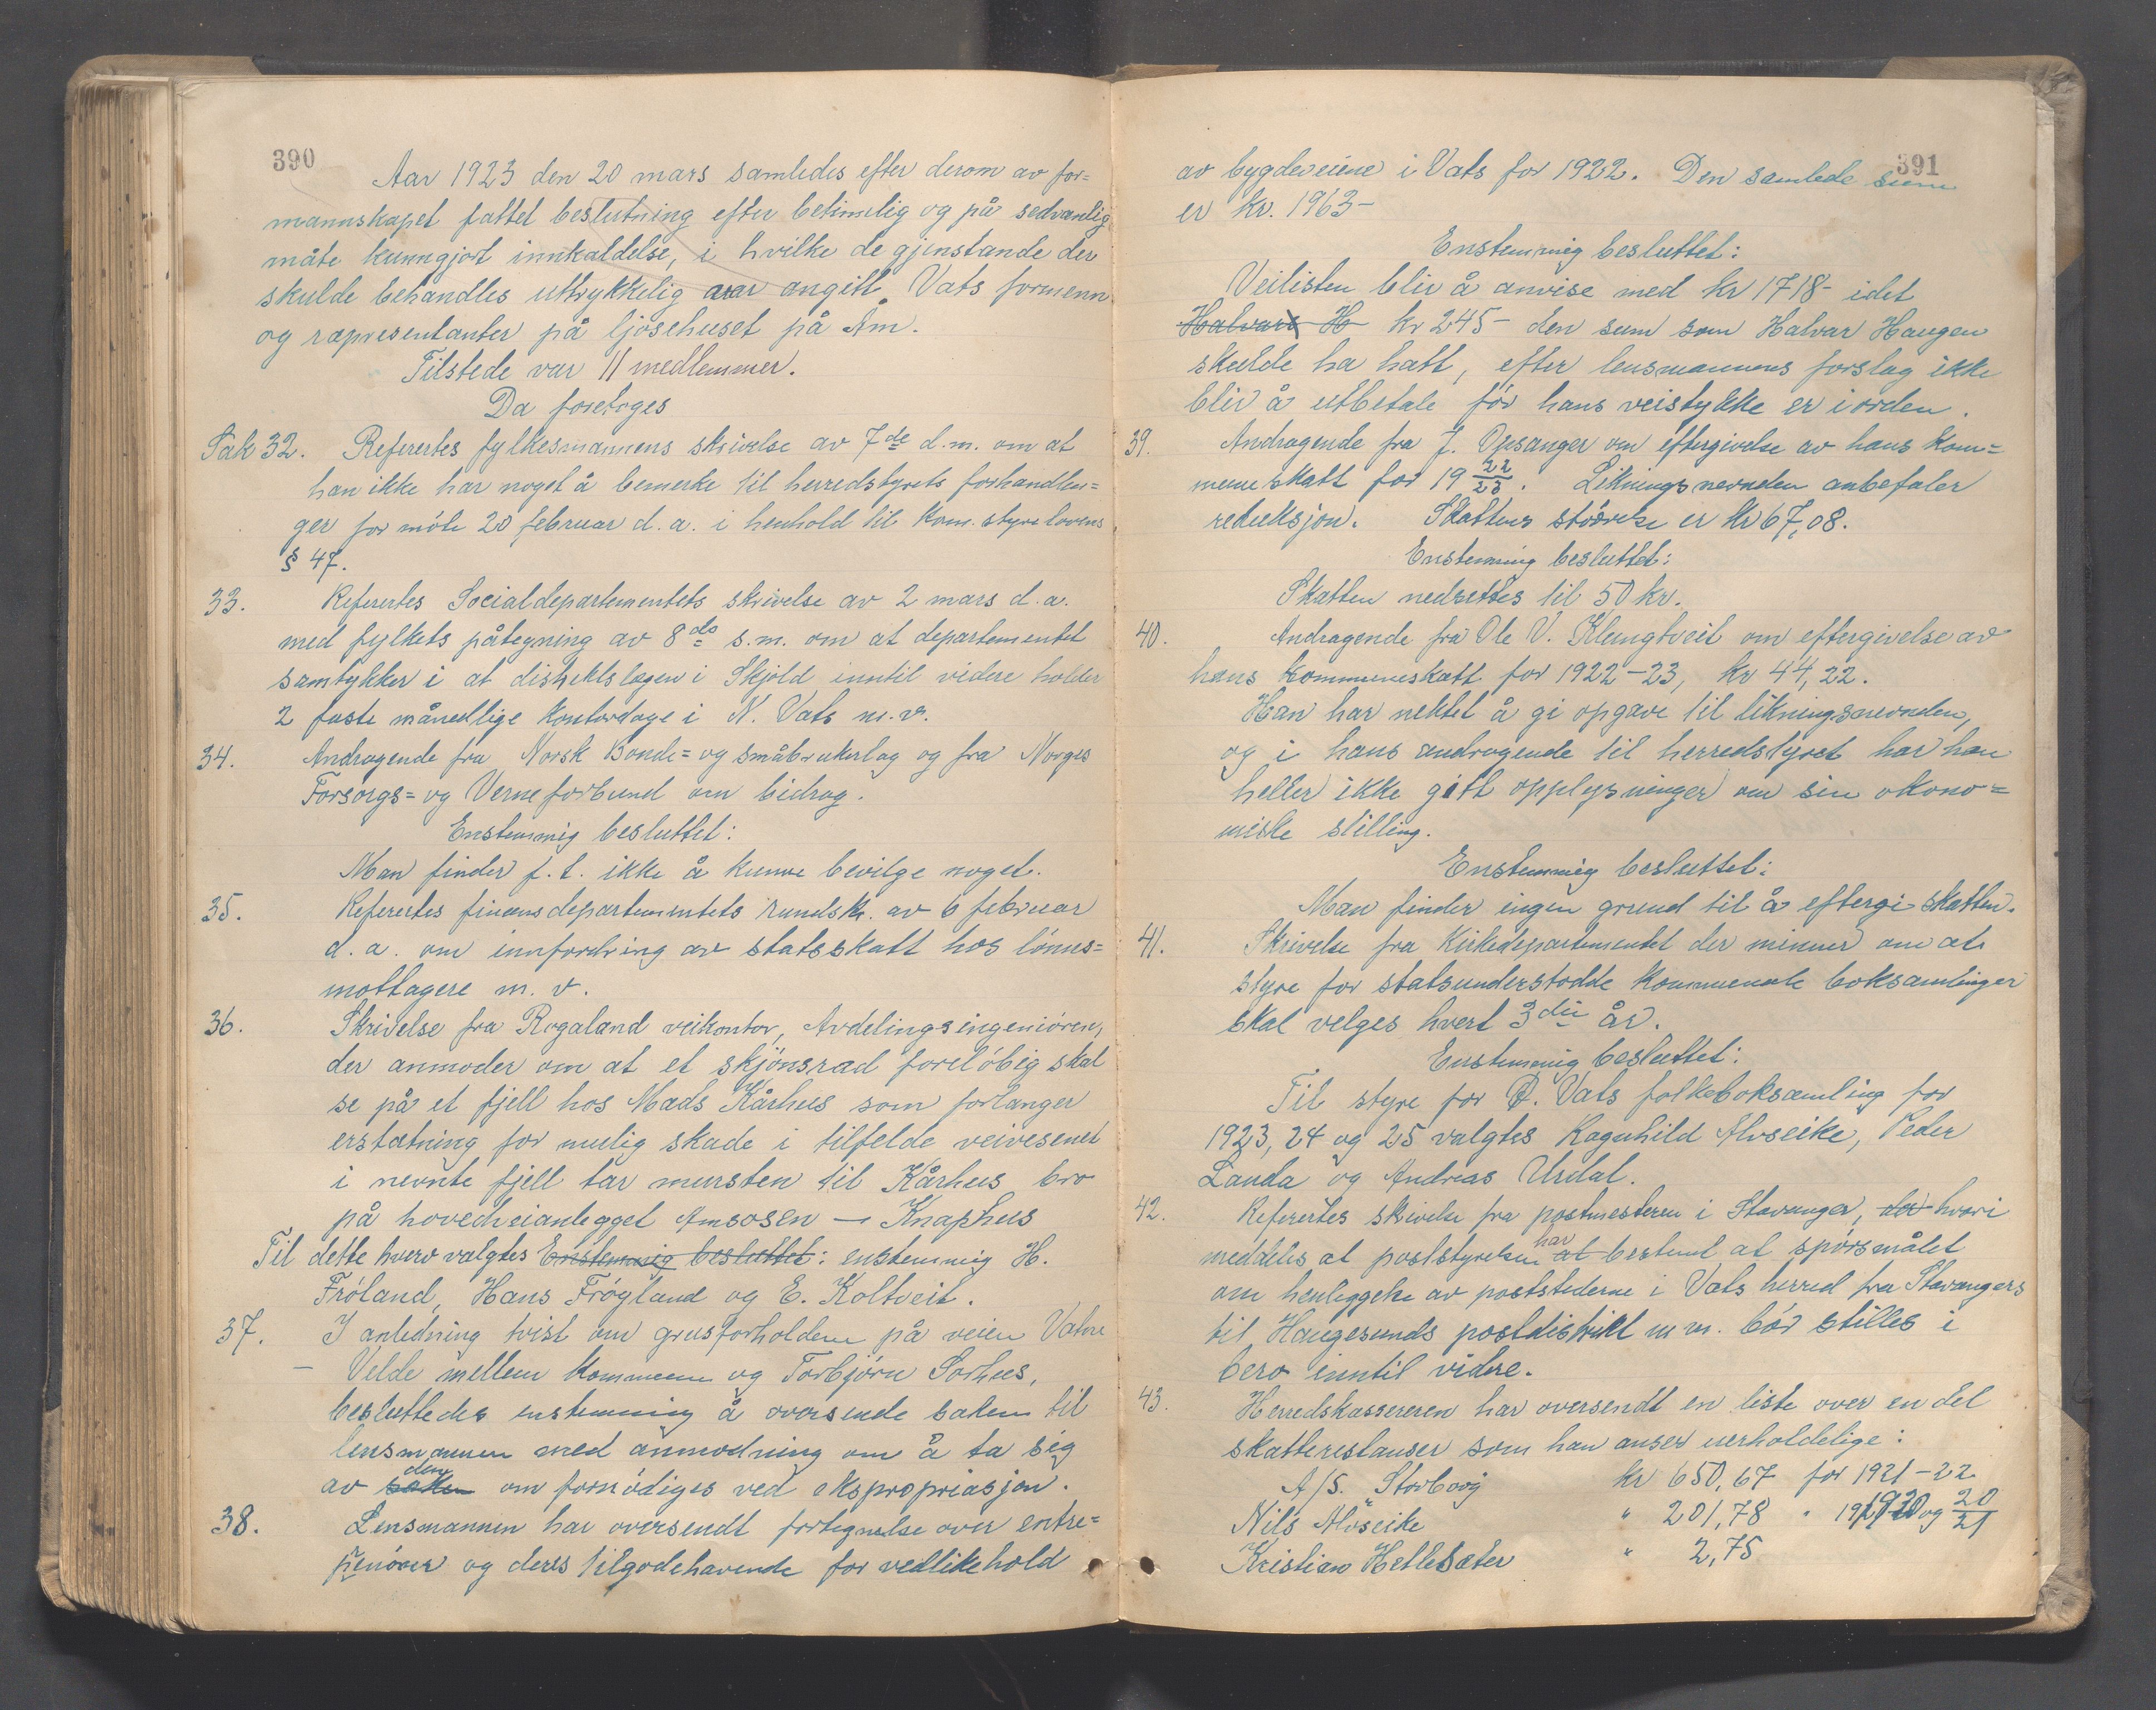 390
Aar 1923 den 20 mars samledes efter derom av for=
mannskapet fattet beslutning efter betimelig og på sedvanlig
måte kunngjort innkaldelse, i hvilke de gjenstande der
skulde behandles uttrykkelig var angitt Vats formenn
og representanter på ljosehuset på Åm.
Tilstede var 11 medlemmer.
Da foretoges
Sak 32. Referertes fylkesmannens skrivelse av 7de d.m. om at
han ikke har noget å bemerke til herredstyrets forhandlin=
ger for möte 20 februar d.a. i henhold til kom. styrelovens
§ 47.
33. Referertes Socialdepartementets skrivelse av 2 mars d.a.
med fylkets påtegning av 8de s.m. om at departementet
samtykker i at distriktslegen i Skjold inntil videre holder
2 faste månedlige kontordage i N. Vats m.v.
34. Andragende fra Norsk Bonde= og småbrukerlag og fra Norges
Forsorgs= og Verneforbund om bidrag.
Enstemmig besluttet:
Man finder f.t. ikke å kunne bevilge noget.
35. Referertes finansdepartementets rundskr. av 6 februar
d.a. om innfordring av statsskatt hos lönns=
mottagere m.v.
36. Skrivelse fra Rogaland veikontor, Avdelingsingeniören,
der anmoder om at et skjönsrad forelöbig skal
se på et fjell hos Mads Kårhus som forlanger
erstatning for mulig skade i tilfelde veivesenet
i nevnte fjell tar mursten til Kårhus bro
på hovedveianlegget Amsosen – Knaphus
Til dette hverv valgtes Enstemmig besluttet: enstemmig H.
Fröland, Hans Frögland og E. Koltveit.
37. I anledning tvist om grusforholdene på veien Vatne
– Velde mellem kommunen og Torbjörn Sørhus,
besluttedes enstemmig å oversende saken til
lensmannen med anmodning om å ta sig
av saken den om fornödiges ved ekspropriasjon.
38. Lensmannen har oversendt fortegnelse over entre=
prenörer og deres tilgodehavende for vedlikehold
391
av bygdeveiene i Vats for 1922. Den samlede sum
er kr. 1963-
Enstemmig besluttet:
Veilisten blir å anvise med kr 1718- idet
Halvar H kr 245- den sum som Halvar Haugen
skulde ha hatt, efter lensmannens forslag ikke
blir å utbetale för hans veistykke er i orden.
39. Andragende fra J. Opsanger om eftergivelse av hans kom=
muneskatt for 19 22/23. Likningsnevnden anbefaler
reduksjon. Skattens störrelse er kr 67,08.
Enstemmig besluttet:
Skatten nedsettes til 50 kr.
40. Andragende fra Ole V. Klungtveit om eftergivelse av
hans kommuneskatt for 1922-23, kr 44,22.
Han har nektet å gi opgave til likningsnevnden,
og i hans andragende til herredstyret har han
heller ikke gitt opplysninger om sin økono=
miske stilling.
Enstemmig besluttet:
Man finder ingen grund til å eftergi skatten.
41. Skrivelse fra Kirkedepartementet der minner om at
styre for statsunderstodde kommunale boksamlinger
skal velges hvert 3die år.
Enstemmig besluttet:
Til styre for Ø. Vats folkeboksamling for
1923, 24 og 25 valgtes Ragnhild Alvseike, Peder
Landa og Andreas Urdal.
42. Referertes skrivelse fra postmesteren i Stavanger, der hvori
meddeles at poststyrelsen har at bestemt at spörsmålet
om henleggelse av poststederne i Vats herred fra Stavangers
til Haugesunds postdistrikt m.m. bör stilles i
bero inntil videre.
43. Herredskassereren har oversendt en liste over en del
skatterestanser som han anser uerholdelige:
A/S. Storborg kr 650,67 for 1921-22
Nils Alvseike " 201,78 " 1920 og 20/21
Kristian Hetlesæter " 2,75